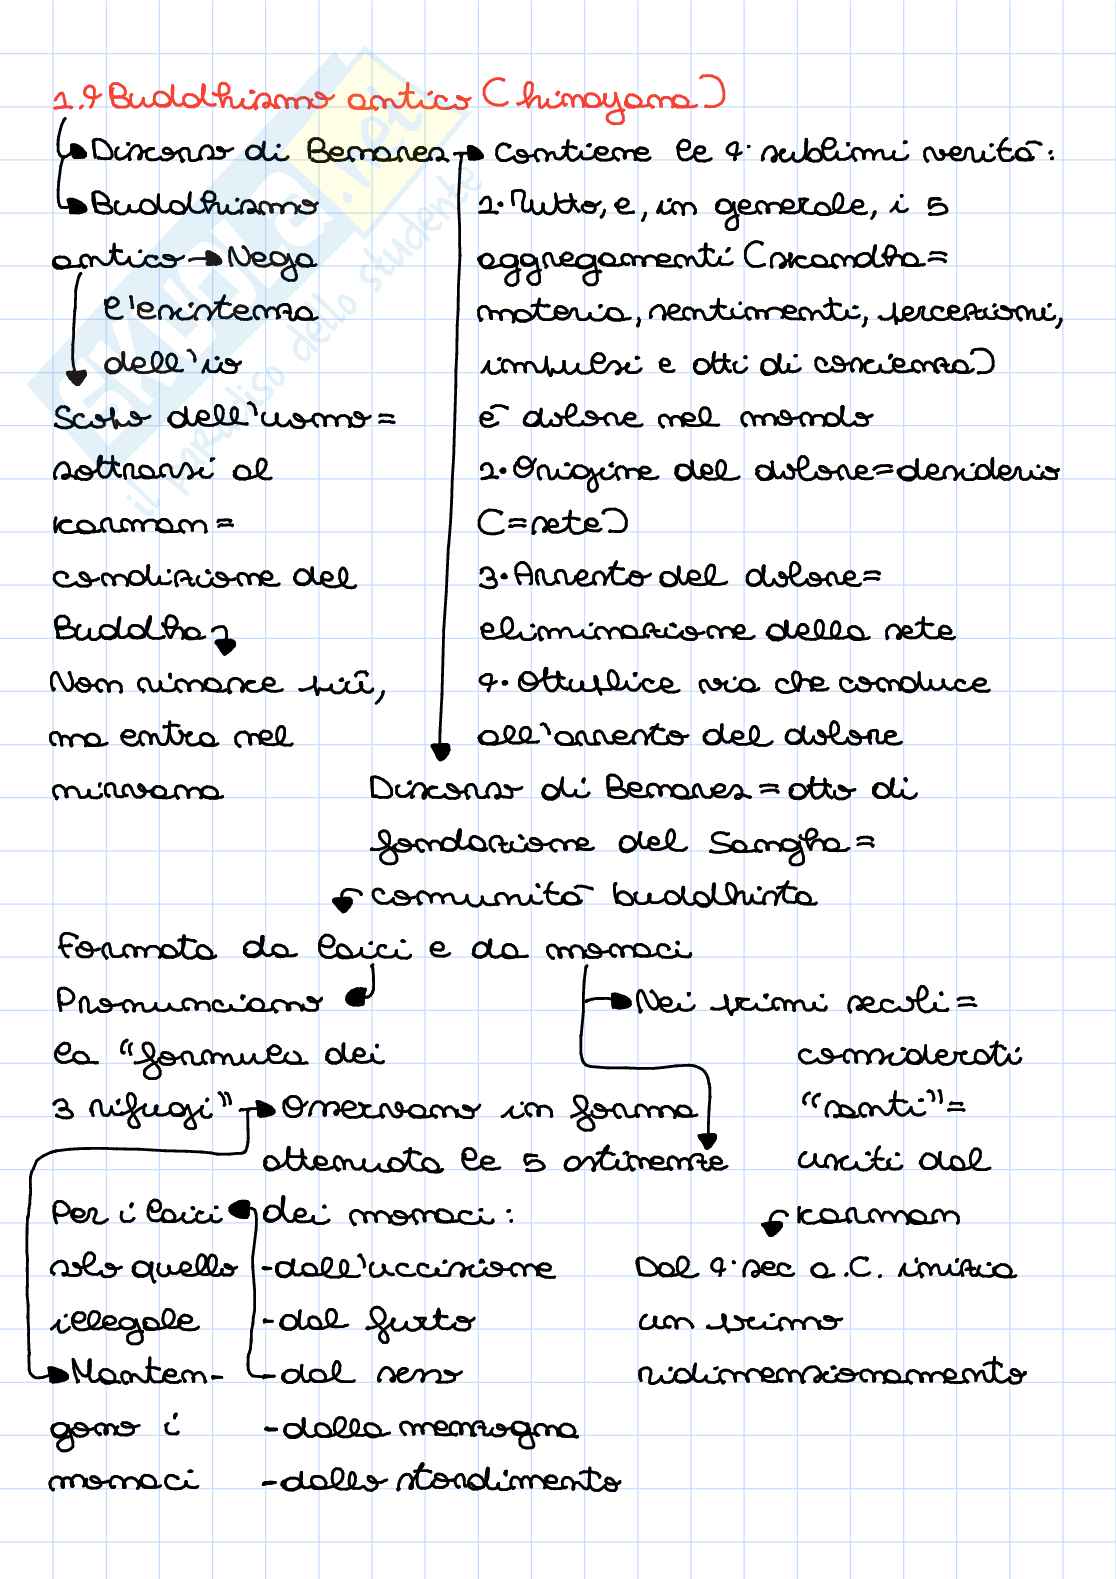 1.9 Buddhismo antico (hinayana)
Discorso di Benares
Buddhismo
antico → Nega
l'esistenza
dell'io
Scopo dell'uomo =
sottrarsi al
karman =
condizione del
Buddha
Non rinasce più,
ma entra nel
nirvana
Contiene le 4 sublimi verità:
1. Tutto, e, in generale, i 5
aggregamenti (skandha =
materia, sentimenti, percezioni,
impulsi e atti di coscienza)
è dolore nel mondo
2. Origine del dolore = desiderio
(= sete)
3. Arresto del dolore =
eliminazione della sete
4. Ottuplice via che conduce
all'arresto del dolore
Discorso di Benares = atto di
fondazione del Sangha =
comunità buddhista
Formata da laici e da monaci
Pronunciano
la "formula dei
3 rifugi"
Osservano in forma
attenuata le 5 astinenze
dei monaci:
- dall'uccisione
- dal furto
- dal sesso
- dalla menzogna
- dallo stordimento
Per i laici
solo quello
illegale
Manten-
gono i
monaci
Nei primi secoli =
considerati
"santi" =
usciti dal
karman
Dal 4° sec a.C. inizia
un primo
ridimensionamento
SKUOLA.net
il paradiso dello studente